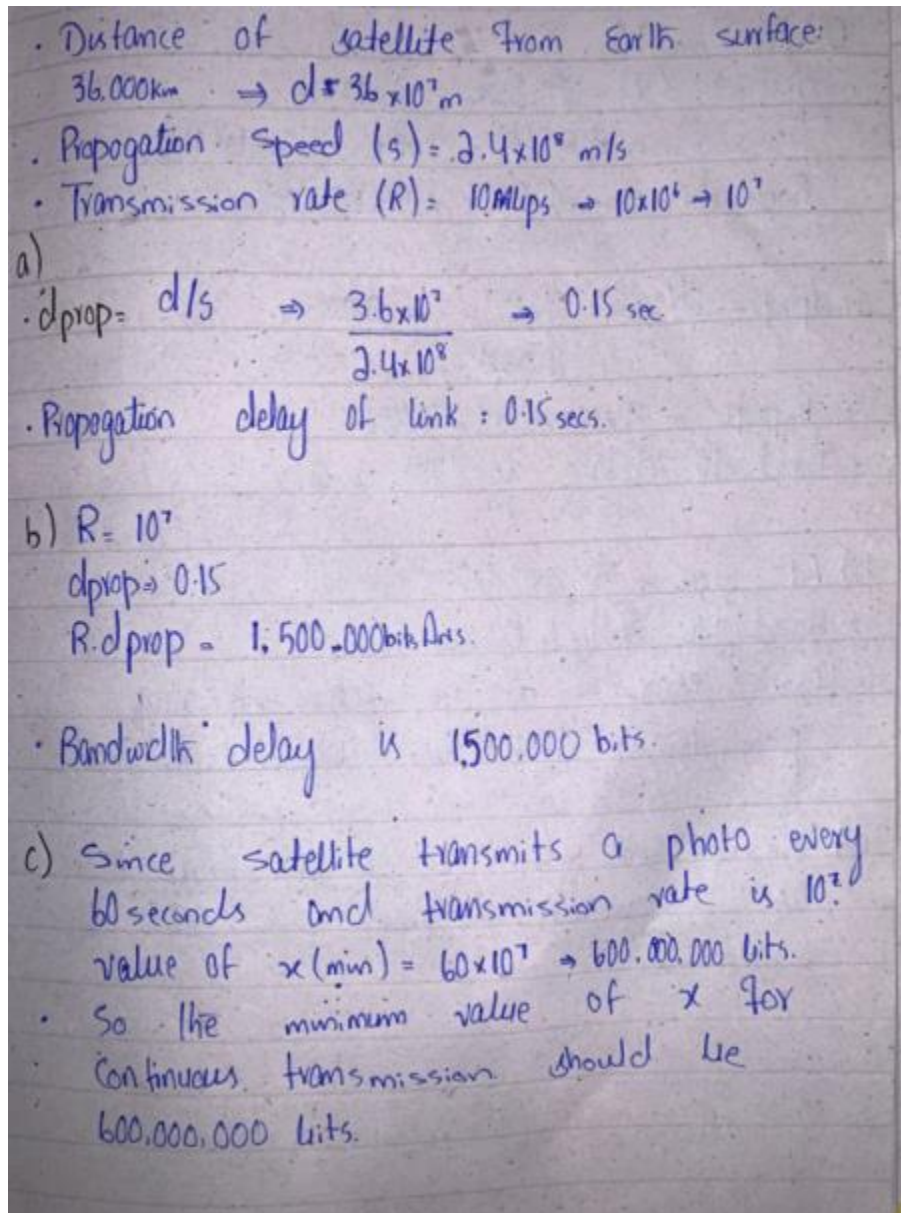 . Distance of satellite from Earth surface:
36.000km → d = 36 x10⁷m
. Propogation Speed (s) = 2.4x10⁸ m/s
. Transmission rate (R) = 10Mbps → 10x10⁶ → 10⁷
a)
. dprop = d/s ⇒ 3.6x10⁷ → 0.15 sec
2.4x10⁸
. Propogation delay of link : 0.15 secs.
b) R = 10⁷
dprop → 0.15
R.dprop = 1.500.000 bits
. Bandwidth delay is 1,500.000 bits.
c) Since satellite transmits a photo every
60 seconds and transmission rate is 10⁷
value of x (min) = 60x10⁷ → 600.000.000 bits.
. So the minimum value of x for
Continuous transmission should be
600.000.000 bits.